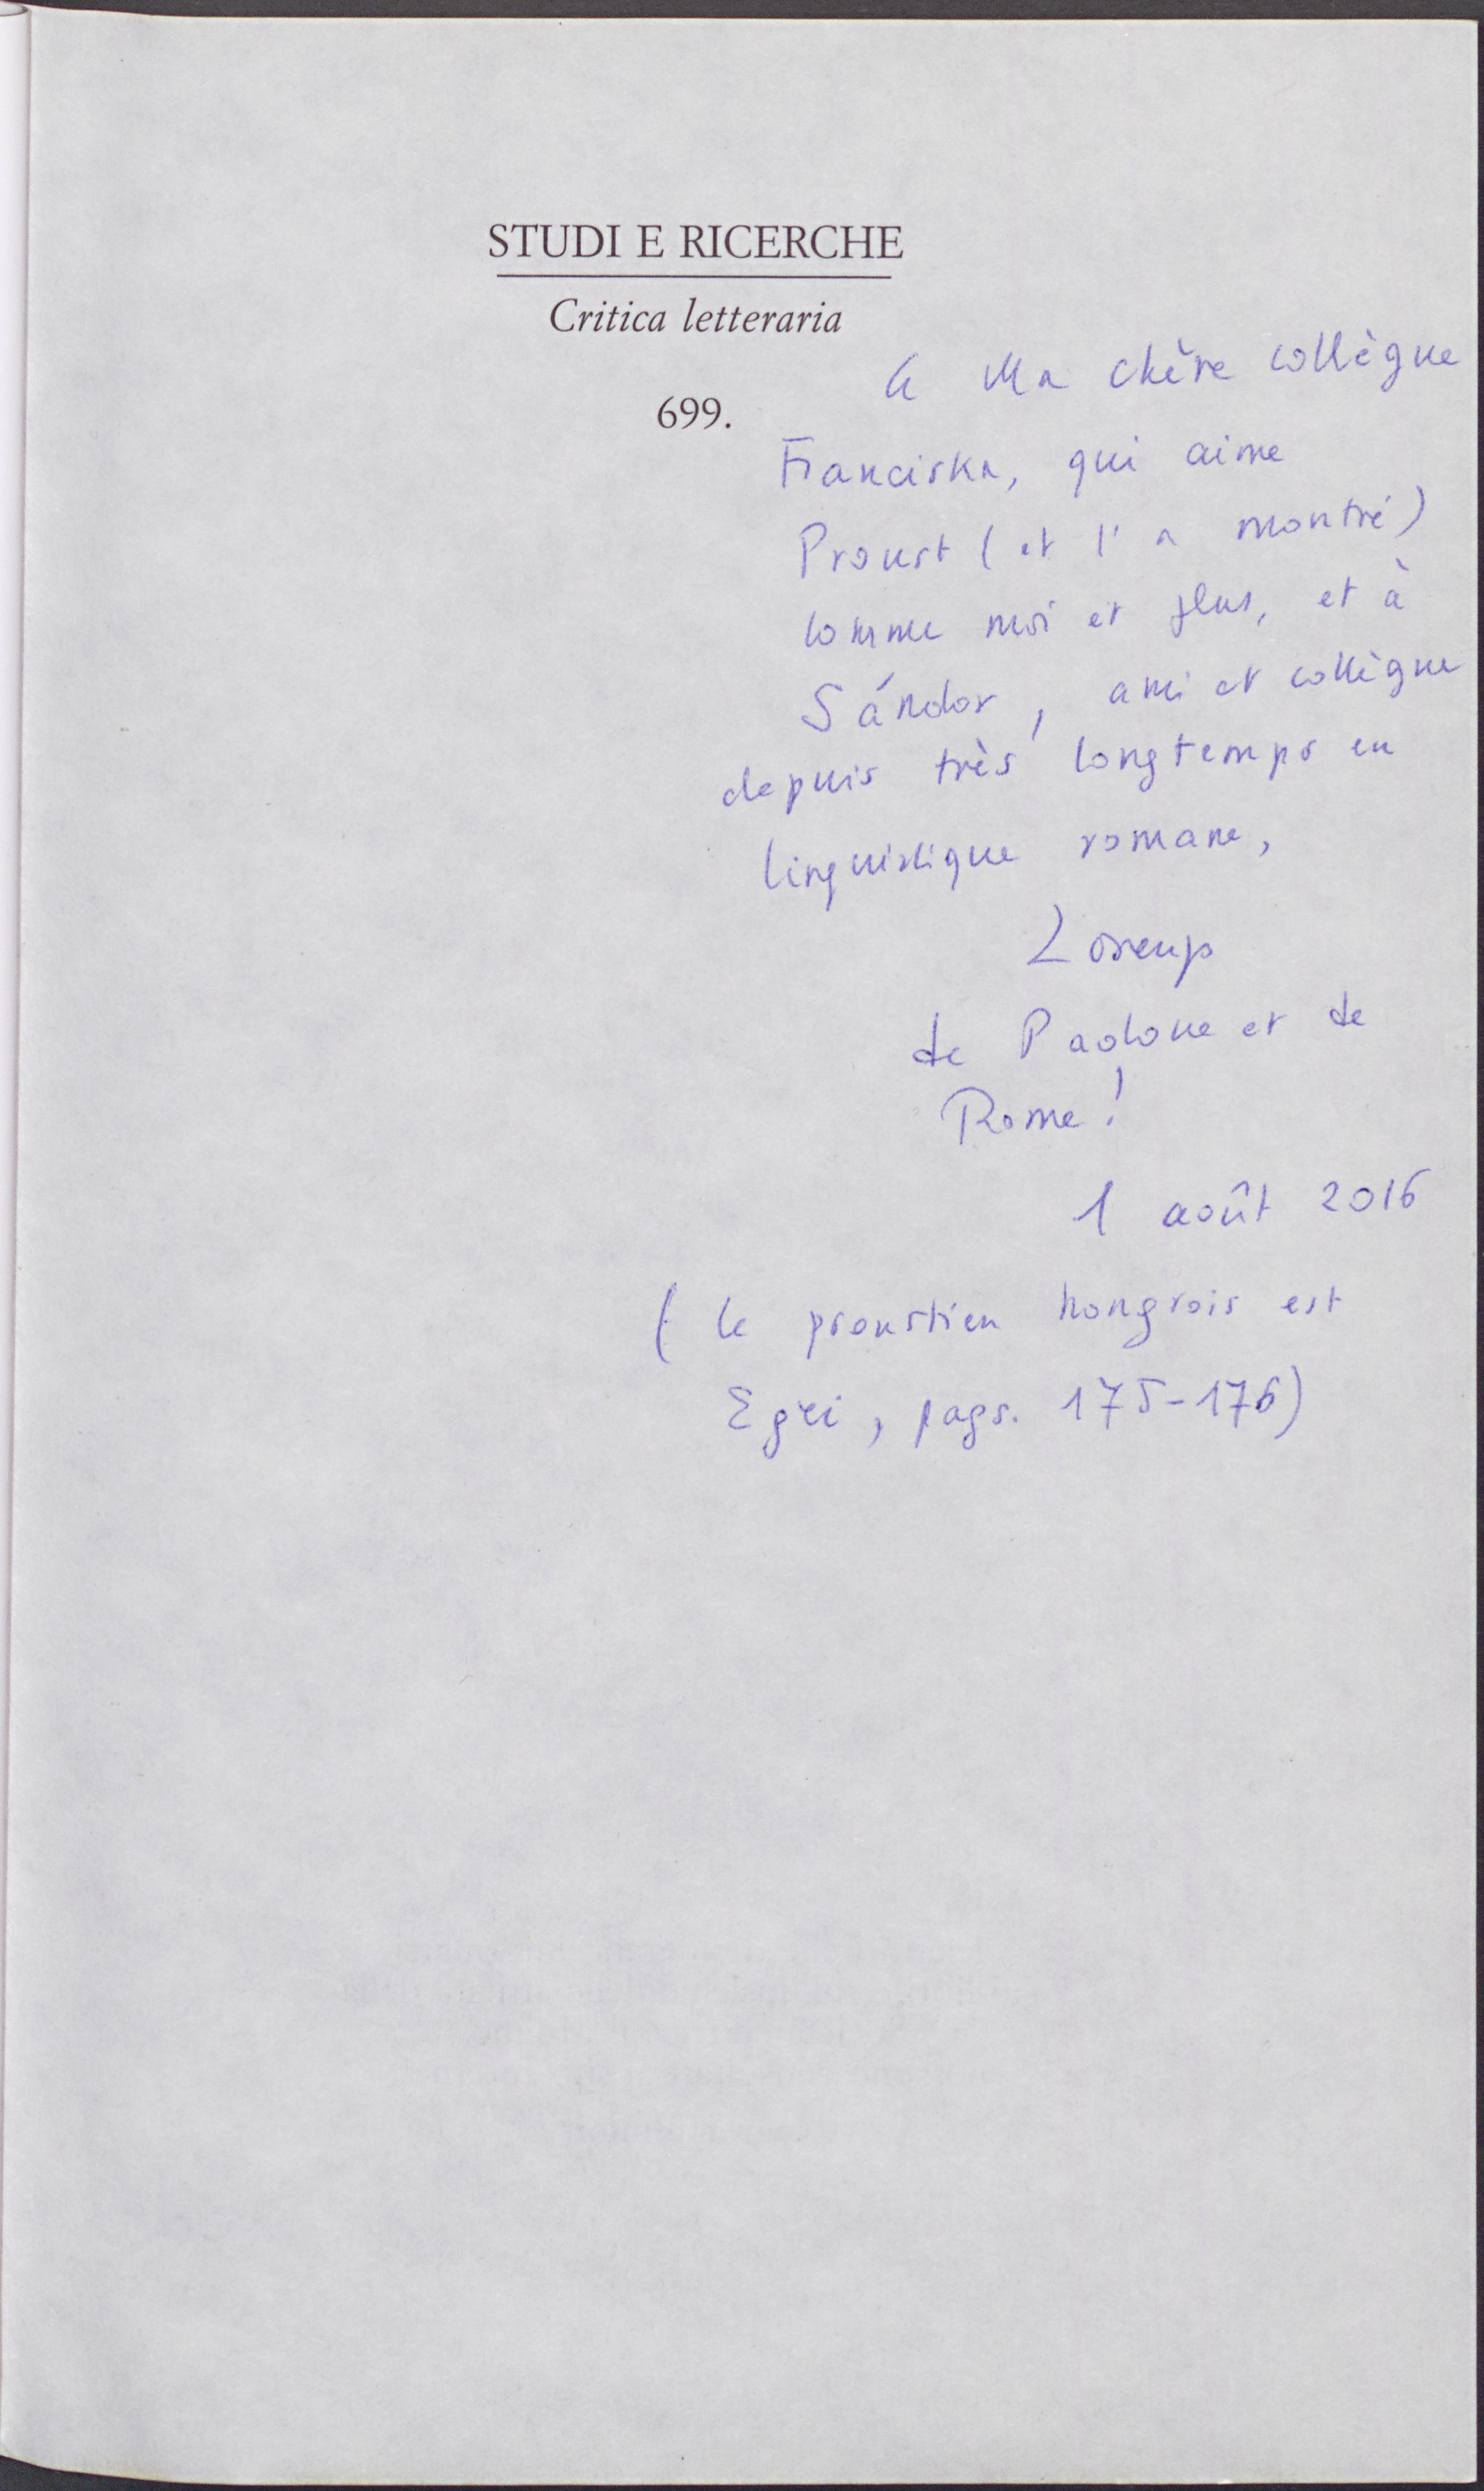 STUDI E RICERCHE
Critica letteraria
699.
à Ma chère collègue
Franciska, qui aime
Proust (et l'a montré)
comme moi et plus, et à
Sándor, ami et collègue
depuis très longtemps en
linguistique romane,
de Padoue et de
Rome!
1 août 2016
(le proustien hongrois est
Egri, pags. 175-176)